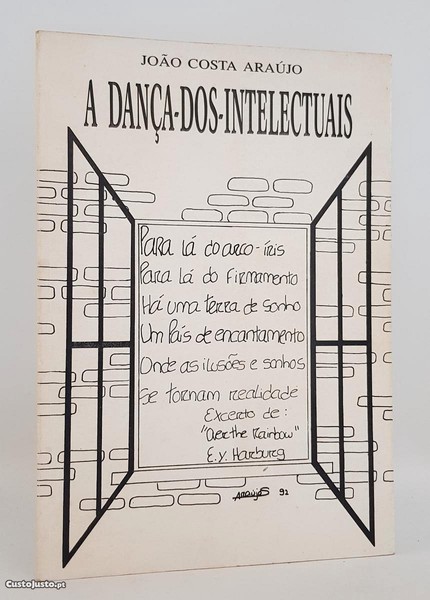 JOÃO COSTA ARAÚJO
A DANÇA-DOS-INTELECTUAIS
Para lá do arco-íris
Para lá do Firmamento
Há uma terra de sonho
Um País de encantamento
Onde as ilusões e sonhos
Se tornam realidade
Excerto de:
"Over the Rainbow"
E.Y. Harburg
Araújo 92
CustoJusto.pt